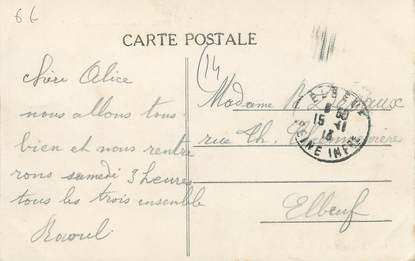 66
CARTE POSTALE
(14
chère Alice
nous allons tous
bien et nous rentre
rons samedi 3 heures
tous les trois ensemble
Raoul
Madame
rue Th.
Elbeuf
ELBEUF
15 - 11
13
SEINE INFRE